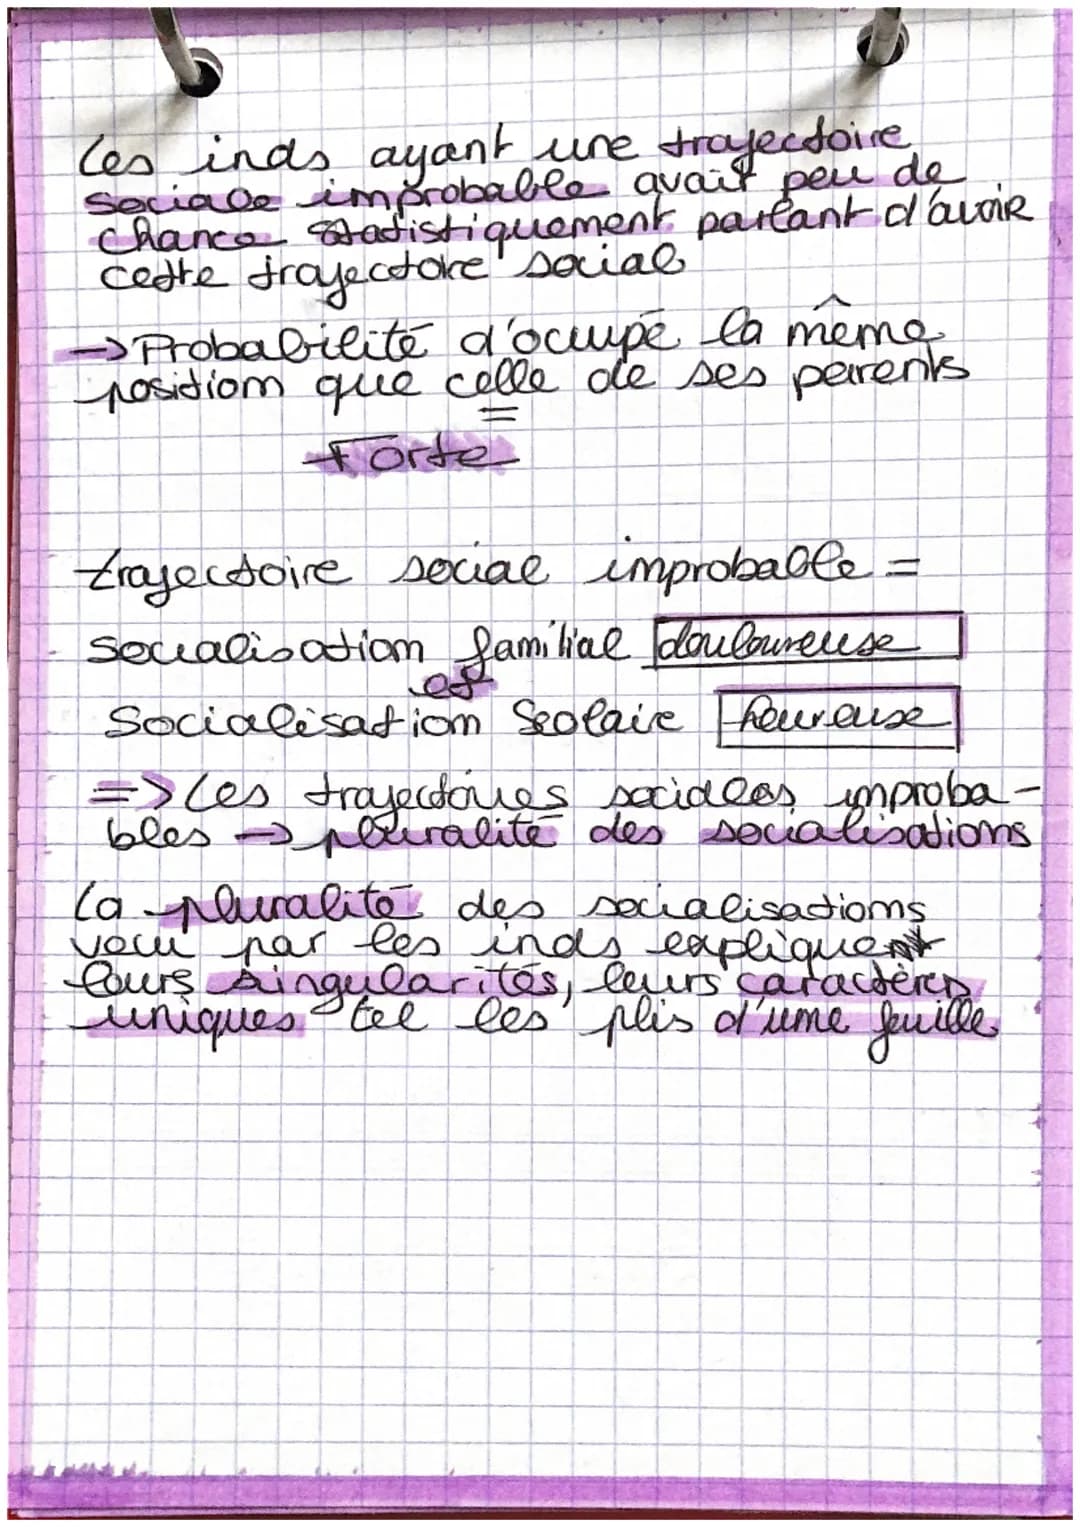 Les inds ayant une trajectoire
sociale improbable avait peu de
chance statistiquement parlant d'avoir
cette trajectoire social
→ Probabilité d'ocupé la même
position que celle de ses parents
=
Forte
trajectoire social improbable =
socialisation familial douloureuse
et
Socialisation Scolaire heureuse
=> Les trajectoires sociales improba-
bles → pluralité des socialisations
La pluralité des socialisations
vecu par les inds explique
leurs singularités, leurs caractères
uniques tel les plis d'une feuille